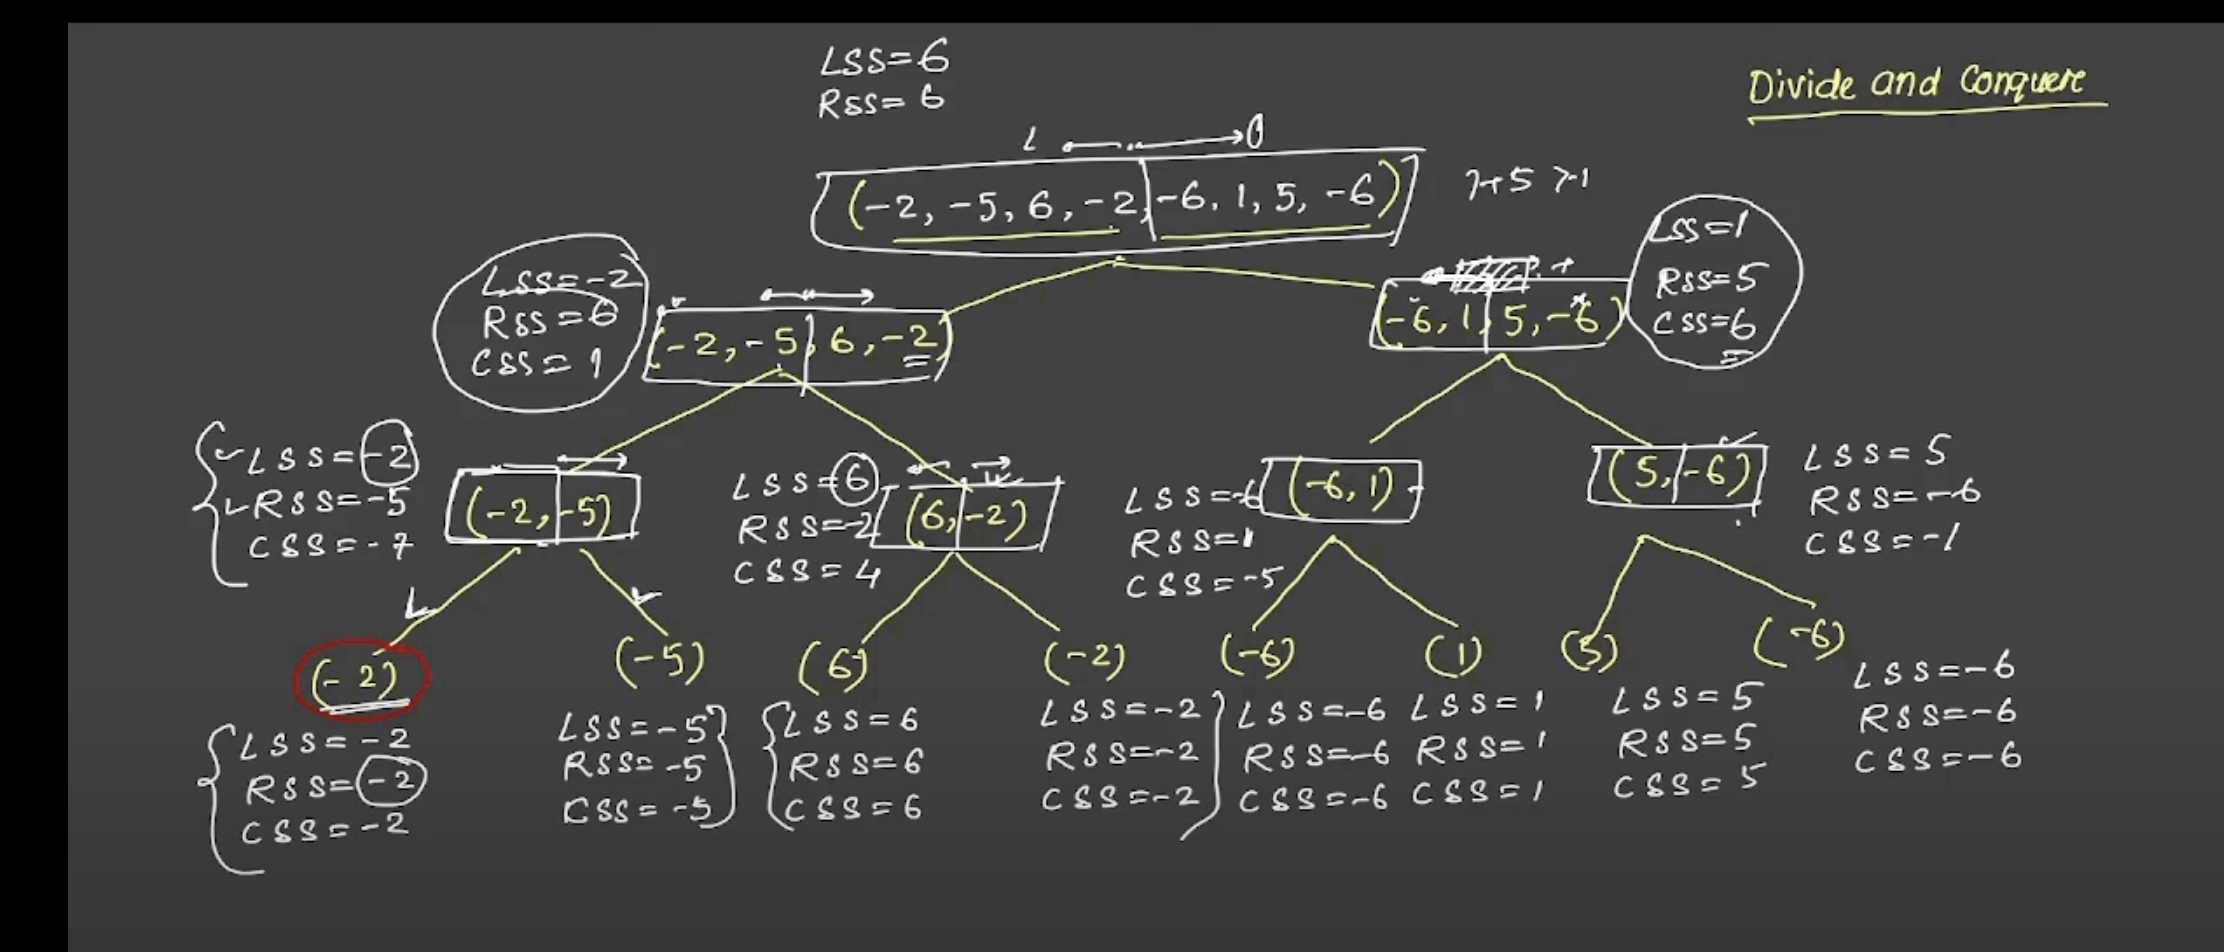 LSS=6
RSS=6
Divide and Conquere
L
(-2, -5, 6, -2, -6, 1, 5, -6)
LSS=-2
RSS=6
CSS=1
(-2, -5, 6, -2)
(-6, 1, 5, -6)
LSS=1
RSS=5
CSS=6
LSS=-2
RSS=-5
CSS=-7
(-2, -5)
LSS=6
RSS=-2
CSS=4
(6, -2)
LSS=-6
RSS=1
CSS=-5
(-6, 1)
(5, -6)
LSS=5
RSS=-6
CSS=-1
(-2)
(-5)
(6)
(-2)
(-6)
(1)
(5)
(-6)
LSS=-2
RSS=-2
CSS=-2
LSS=-5
RSS=-5
CSS=-5
LSS=6
RSS=6
CSS=6
LSS=-2
RSS=-2
CSS=-2
LSS=-6
RSS=-6
CSS=-6
LSS=1
RSS=1
CSS=1
LSS=5
RSS=5
CSS=5
LSS=-6
RSS=-6
CSS=-6